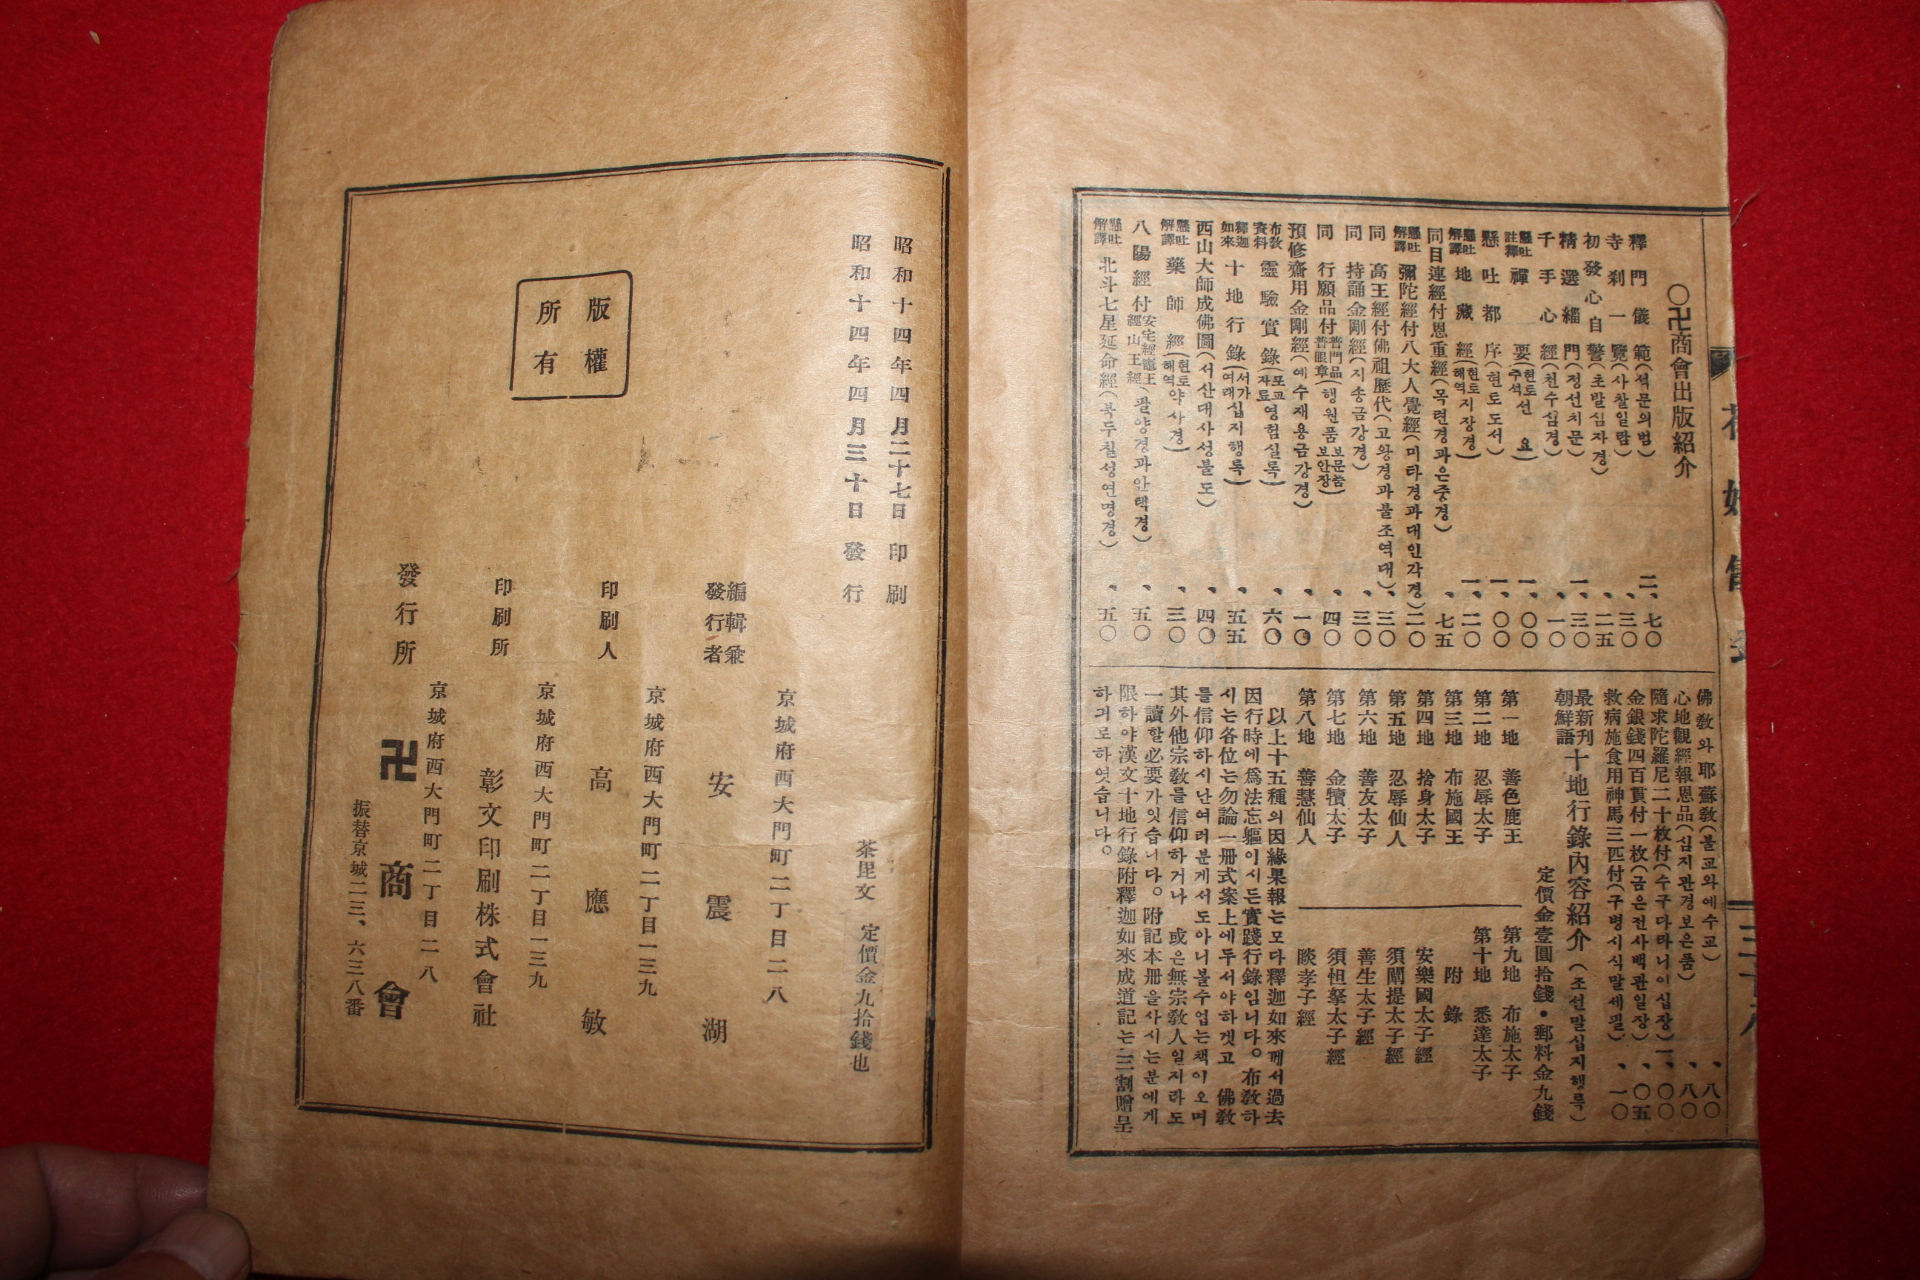 〇卍商會出版紹介
釋門儀範(석문의범) 二、七〇
寺刹一覽(사찰일람) 、三〇
初發心自警(초발심자경) 、二五
精選緇門(정선치문) 一、三〇
千手心經(천수심경) 、一〇
懸吐註釋 禪要(현토주석 선요) 一、〇〇
懸吐都序(현토도서) 一、〇〇
懸吐解譯 地藏經(현토해역 지장경) 一、二〇
同目連經付恩重經(목련경과은중경) 、七五
懸吐解譯 彌陀經付八大人覺經(미타경과대인각경) 、二〇
同 高王經付佛祖歷代(고왕경과불조역대) 、三〇
同 持誦金剛經(지송금강경) 、三〇
同 行願品付普門品普眼章(행원품보문품보안장) 、四〇
預修齋用金剛經(예수재용금강경) 、一〇
布敎資料 靈驗實錄(포교자료 영험실록) 、六〇
釋迦如來 十地行錄(서가여래 십지행록) 、五五
西山大師成佛圖(서산대사성불도) 、四〇
懸吐解譯 藥師經(현토해역 약사경) 、三〇
八陽經付安宅經竈王經山王經(팔양경과안택경) 、五〇
懸吐解譯 北斗七星延命經(북두칠성연명경) 、五〇
佛敎와耶蘇敎(불교와예수교) 、八〇
心地觀經報恩品(심지관경보은품) 、八〇
隨求陀羅尼二十枚付(수구다라니이십장) 一、〇〇
金銀錢四百貫付一枚(금은전사백관일장) 、〇五
救病施食用神馬三匹付(구병시식말세필) 、一〇
最新刊朝鮮語 十地行錄內容紹介(조선말십지행록)
定價金壹圓拾錢•郵料金九錢
第一地 善色鹿王 第九地 布施太子
第二地 忍辱太子 第十地 悉達太子
第三地 布施國王 附錄
第四地 捨身太子 安樂國太子經
第五地 忍辱仙人 須闡提太子經
第六地 善友太子 善生太子經
第七地 金犢太子 須怛拏太子經
第八地 善慧仙人 睒孝子經
以上十五種의因緣果報는모다釋迦如來께서過去
因行時에爲法忘軀이시든實踐行錄임니다。布敎하
시는各位는勿論一册式案上에두서야하겟고 佛敎
를信仰하시난여러분게서도아니볼수업는책이오며
其外他宗敎를信仰하거나 或은無宗敎人일지라도
一讀할必要가잇습니다。附記本册을사시는분에게
限하야漢文十地行錄附釋迦如來成道記는三割贈呈
하긔로하엿습니다。
昭和十四年四月二十七日 印刷
昭和十四年四月三十日 發行
茶毘文 定價金九拾錢也
版權
所有
京城府西大門町二丁目二八
編輯兼
發行者 安震湖
京城府西大門町二丁目一三九
印刷人 高應敏
京城府西大門町二丁目一三九
印刷所 彰文印刷株式會社
京城府西大門町二丁目二八
發行所 卍商會
振替京城二三、六三八番